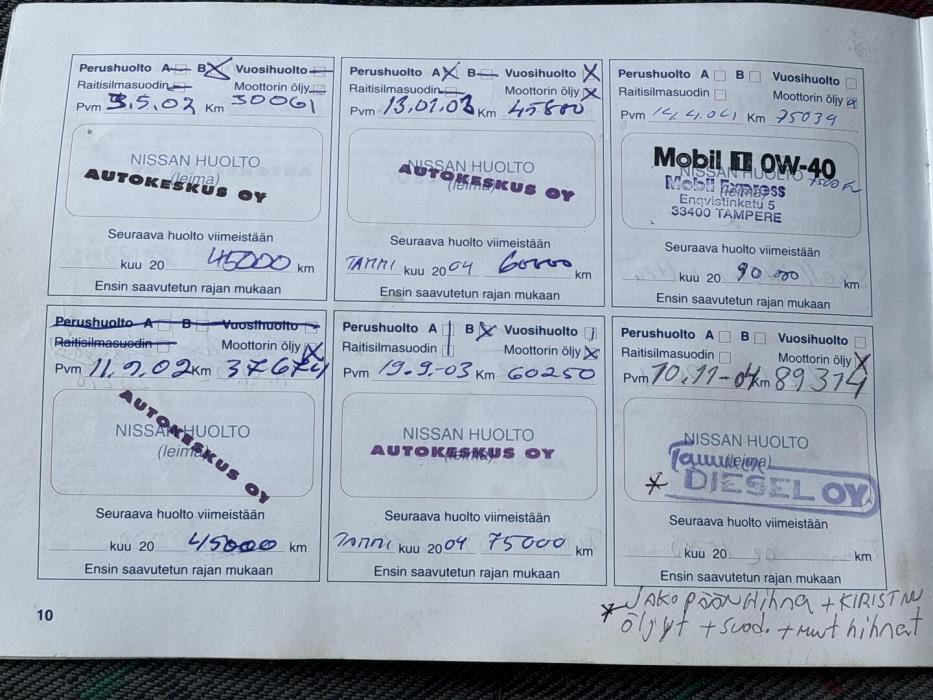 Perushuolto A B Vuosihuolto
Raitisilmasuodin Moottorin öljy
Pvm 3.5.02 Km 30061
NISSAN HUOLTO
(leima)
AUTOKESKUS OY
Seuraava huolto viimeistään
kuu 20 45000 km
Ensin saavutetun rajan mukaan
Perushuolto A B Vuosihuolto
Raitisilmasuodin Moottorin öljy
Pvm 13.01.03 Km 45800
NISSAN HUOLTO
(leima)
AUTOKESKUS OY
Seuraava huolto viimeistään
TAMMI kuu 2004 60000 km
Ensin saavutetun rajan mukaan
Perushuolto A B Vuosihuolto
Raitisilmasuodin Moottorin öljy
Pvm 14.4.04 Km 75034
Mobil 1 0W-40
NISSAN HUOLTO
(leima)
Mobil Express
Enqvistinkatu 5
33400 TAMPERE
Seuraava huolto viimeistään
kuu 20 90 000 km
Ensin saavutetun rajan mukaan
Perushuolto A B Vuosihuolto
Raitisilmasuodin Moottorin öljy
Pvm 11.9.02 Km 37674
NISSAN HUOLTO
(leima)
AUTOKESKUS OY
Seuraava huolto viimeistään
kuu 20 45000 km
Ensin saavutetun rajan mukaan
Perushuolto A B Vuosihuolto
Raitisilmasuodin Moottorin öljy
Pvm 19.9-03 Km 60250
NISSAN HUOLTO
(leima)
AUTOKESKUS OY
Seuraava huolto viimeistään
TAMMI kuu 2004 75000 km
Ensin saavutetun rajan mukaan
Perushuolto A B Vuosihuolto
Raitisilmasuodin Moottorin öljy
Pvm 10.11-04 Km 89314
NISSAN HUOLTO
(leima)
* DIESEL OY
Seuraava huolto viimeistään
kuu 20 km
Ensin saavutetun rajan mukaan
10
* JAKOPÄÄN Hihna + KIRISTIN
öljyt + suod. + muut hihnat